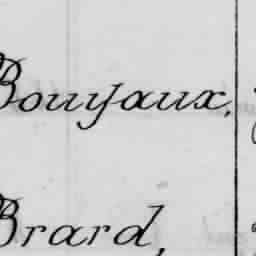 Bouyaux.
Brard,